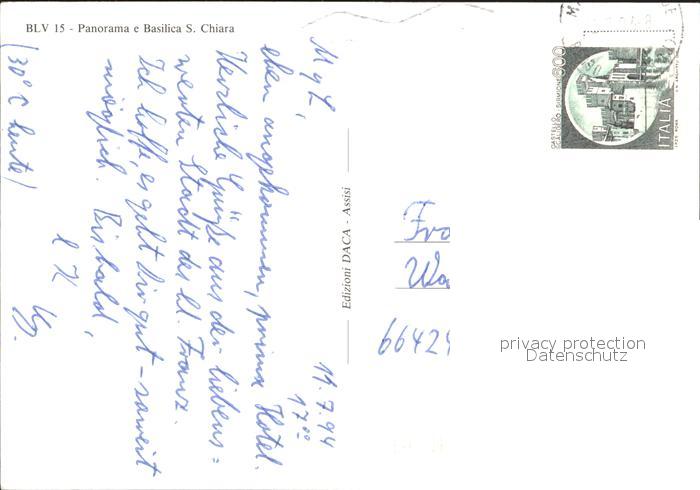 BLV 15 - Panorama e Basilica S. Chiara
11.7.94
17°°
M g L,
eben angekommen, prima Hotel.
Herzliche Grüße aus der liebens=
werten Stadt des hl. Franz.
Ich hoffe, es geht Dir gut - soweit
möglich. Bis bald,
l K
(30° C heute)
Edizioni DACA - Assisi
600
CASTELLO
SCALIGERO - SIRMIONE
ITALIA
I.P.Z.S. ROMA
Fra
Wa
6642
privacy protection
Datenschutz